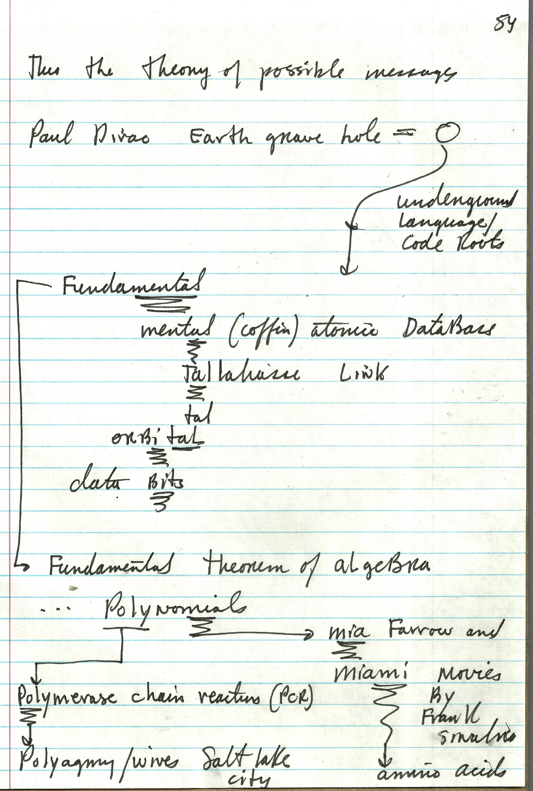 84
Thus the theory of possible messages
Paul Dirac Earth grave hole = O
underground
language/
Code Roots
Fundamental
mental (coffin) atomic DataBase
Tallahasse Link
tal
orBital
data Bits
Fundamental theorem of algeBra
... Polynomials
mia Farrow and
Miami Movies
By
Frank
Sinatra
Polymerase chain reaction (PCR)
Polyagmy/wives Salt lake
city
amino acids